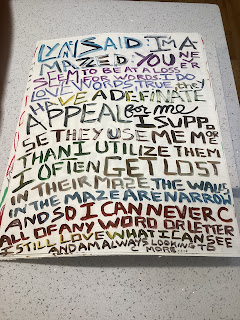 LYN SAID I'M A
MAZED YOU NE
VER
SEEM TO BE AT A LOSS
FOR WORDS. I DO
LOVE WORDS, TRUE, they
HAVE A DEFINATE
APPEAL for me
I SUPPO
SE THEY USE ME MO
RE
THAN I UTILIZE THEM
I OFTEN GET LOST
IN THEIR MAZE, THE WALLS
IN THE MAZE ARE NARROW
AND SO I CAN NEVER C
ALL OF ANY WORD OR LETTER
I STILL LOVE WHAT I CAN SEE
AND AM ALWAYS LOOKING TO
C MORE